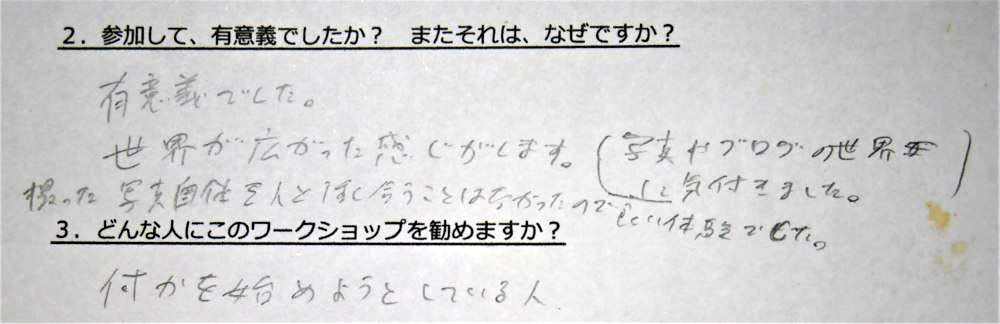 2．参加して、有意義でしたか？　またそれは、なぜですか？
有意義でした。
世界が広がった感じがします。（写真やブログの世界
に気付きました。）
撮った写真自体を人とはなし合うことはなかったので
よい体験でした。
3．どんな人にこのワークショップを勧めますか？
何かを始めようとしている人